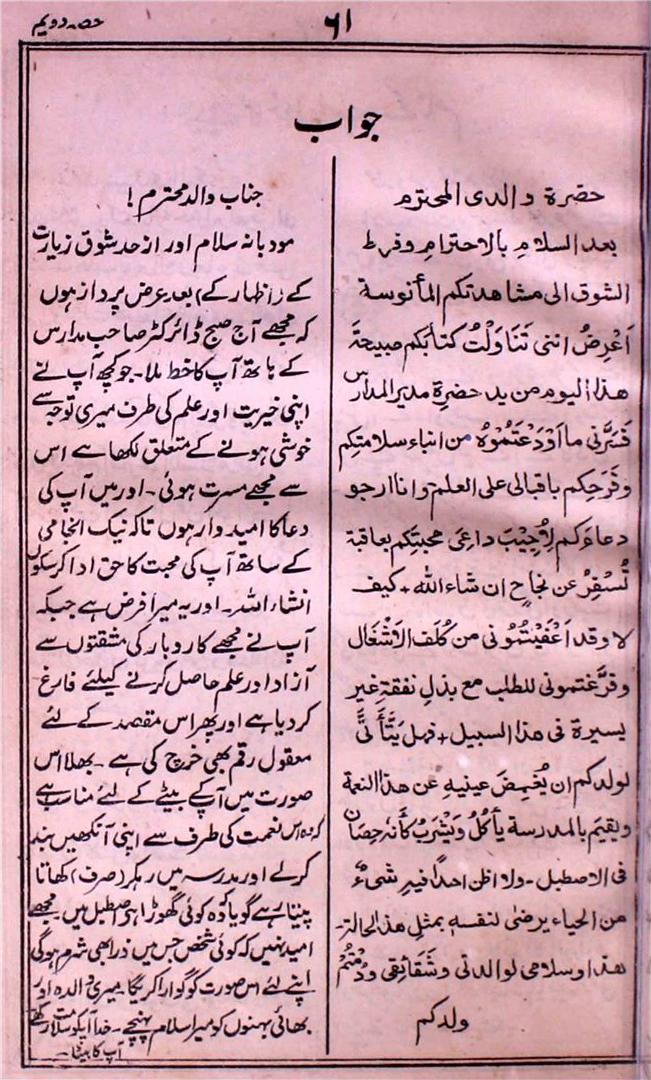 حصہ دویم
۶۱
جواب
حضرة والدی المحترم
بعد السلام بالاحترام وفرط
الشوق الی مشاهدتکم المأنوسة
اَعْرِضُ اننی تَنَاوَلْتُ کتابَکم صبیحةَ
هذا الیوم من ید حضرة مدیر المدارس
فَسَرَّنی ما اَوْدَعْتُمُوْهُ من انباء سلامتکم
وفَرَحِکم باقبالی علی العلم وانا ارجو
دعاءَکم لِاُجِیْبَ داعیَ محبتِکم بعاقبة
تُسْفِرُ عن نجاحٍ ان شاء الله + کیف
لا وقد اَعْفَیْتُمُونی من کُلَفِ الاَشْغَال
وفرَّغتمونی للطلب مع بذلِ نفقةٍ غیر
یسیرة فی هذا السبیل + فهل یَتَأَتّٰی
لولدکم ان یُغْمِضَ عینیهِ عن هذا النعمة
ویقیم بالمدرسة یأکُلُ ویَشْرَبُ کَأَنہ حِصَان
فی الاصطبل - ولا اظن احداً فیهِ شیءٌ
من الحیاء یرضیٰ لنفسهٖ بمثلِ هذا الحالة-
هذا وسلامی لوالدتی وشقائقی ودُمْتُمْ
ولدکم
جناب والد محترم!
مودبانہ سلام اور از حد شوق زیارت
کے (اظہار کے) بعد عرض پرداز ہوں
کہ مجھے آج صبح ڈائرکٹر صاحب مدارس
کے ہاتھ آپ کا خط ملا۔ جو کچھ آپ نے
اپنی خیریت اور علم کی طرف میری توجہ سے
خوشی ہونے کے متعلق لکھا ہے اس
سے مجھے مسرت ہوئی۔ اور میں آپ کی
دعا کا امیدوار ہوں تاکہ نیک انجامی
کے ساتھ آپ کی محبت کا حق ادا کر سکوں
انشاء اللہ۔ اور یہ میرا فرض ہے جبکہ
آپ نے مجھے کاروبار کی مشقتوں سے
آزاد اور علم حاصل کرنے کیلئے فارغ
کر دیا ہے اور پھر اس مقصد کے لئے
معقول رقم بھی خرچ کی ہے۔ بھلا اس
صورت میں آپکے بیٹے کے لئے مناسب ہے
کہ وہ اس نعمت کی طرف سے اپنی آنکھیں بند
کرلے اور مدرسہ میں رہکر (صرف) کھاتا
پیتا رہے گویا کہ وہ کوئی گھوڑا ہو اصطبل میں۔ مجھے
امید نہیں کہ کوئی شخص جس میں ذرا بھی شرم ہوگی
اپنے لئے اس صورت کو گوارا کریگا۔ میری والدہ اور
بھائی بہنوں کو میرا سلام پہنچے۔ خدا آپکو سلامت رکھے
آپ کا بیٹا۔